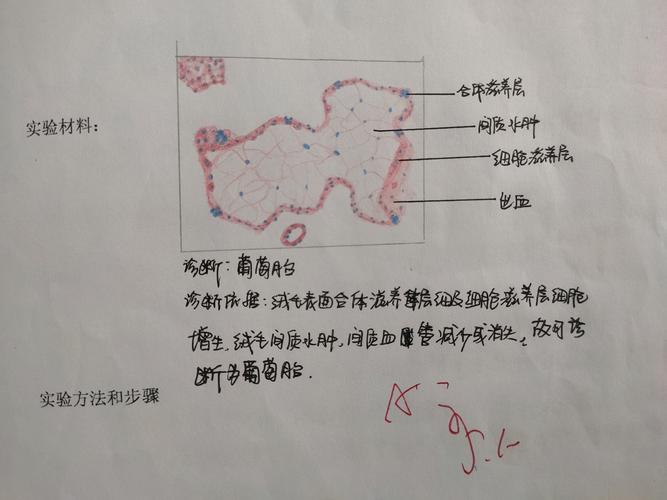 合体滋养层
间质水肿
实验材料：
细胞滋养层
出血
诊断：葡萄胎
诊断依据：绒毛表面合体滋养层细及细胞滋养层细胞
增生，绒毛间质水肿，间质血管减少或消失，故可诊
断为葡萄胎．
实验方法和步骤